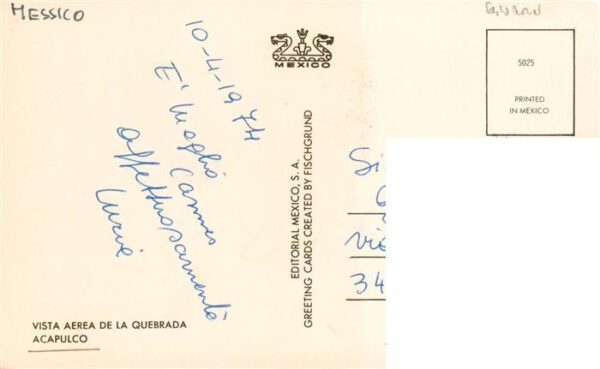 MESSICO
10-4-1974
E'
Cannes
affettuosamente
MEXICO
5025
PRINTED
IN MEXICO
EDITORIAL MEXICO, S. A.
GREETING CARDS CREATED BY FISCHGRUND
Si
via
34
VISTA AEREA DE LA QUEBRADA
ACAPULCO